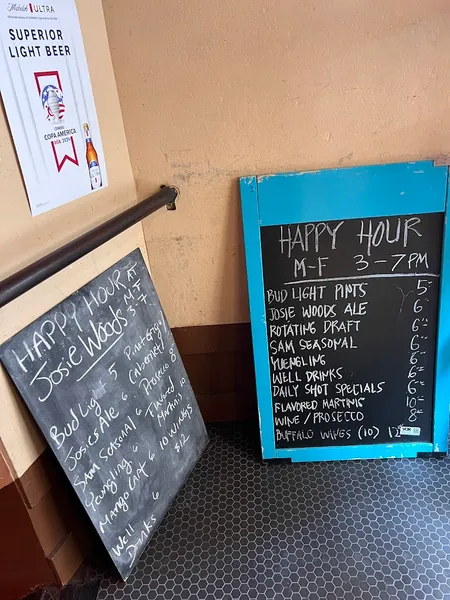 Michelob ULTRA
SUPERIOR
LIGHT BEER
COPA AMERICA
USA 2024
HAPPY HOUR AT
Josie Woods M-F
3-7
Bud Light 5
Josies Ale 6
Sam Seasonal 6
Yuengling 6
Mango Cart 6
Well
Drinks 6
Pinot Grigio
Cabernet 8
Prosecco 8
Flavored
Martinis 10
10 Wings
$12
HAPPY HOUR
M-F 3-7PM
BUD LIGHT PINTS 5
JOSIE WOODS ALE 6
ROTATING DRAFT 6
SAM SEASONAL 6
YUENGLING 6
WELL DRINKS 6
DAILY SHOT SPECIALS 6
FLAVORED MARTINIS 10
WINE / PROSECCO 8
BUFFALO WINGS (10)